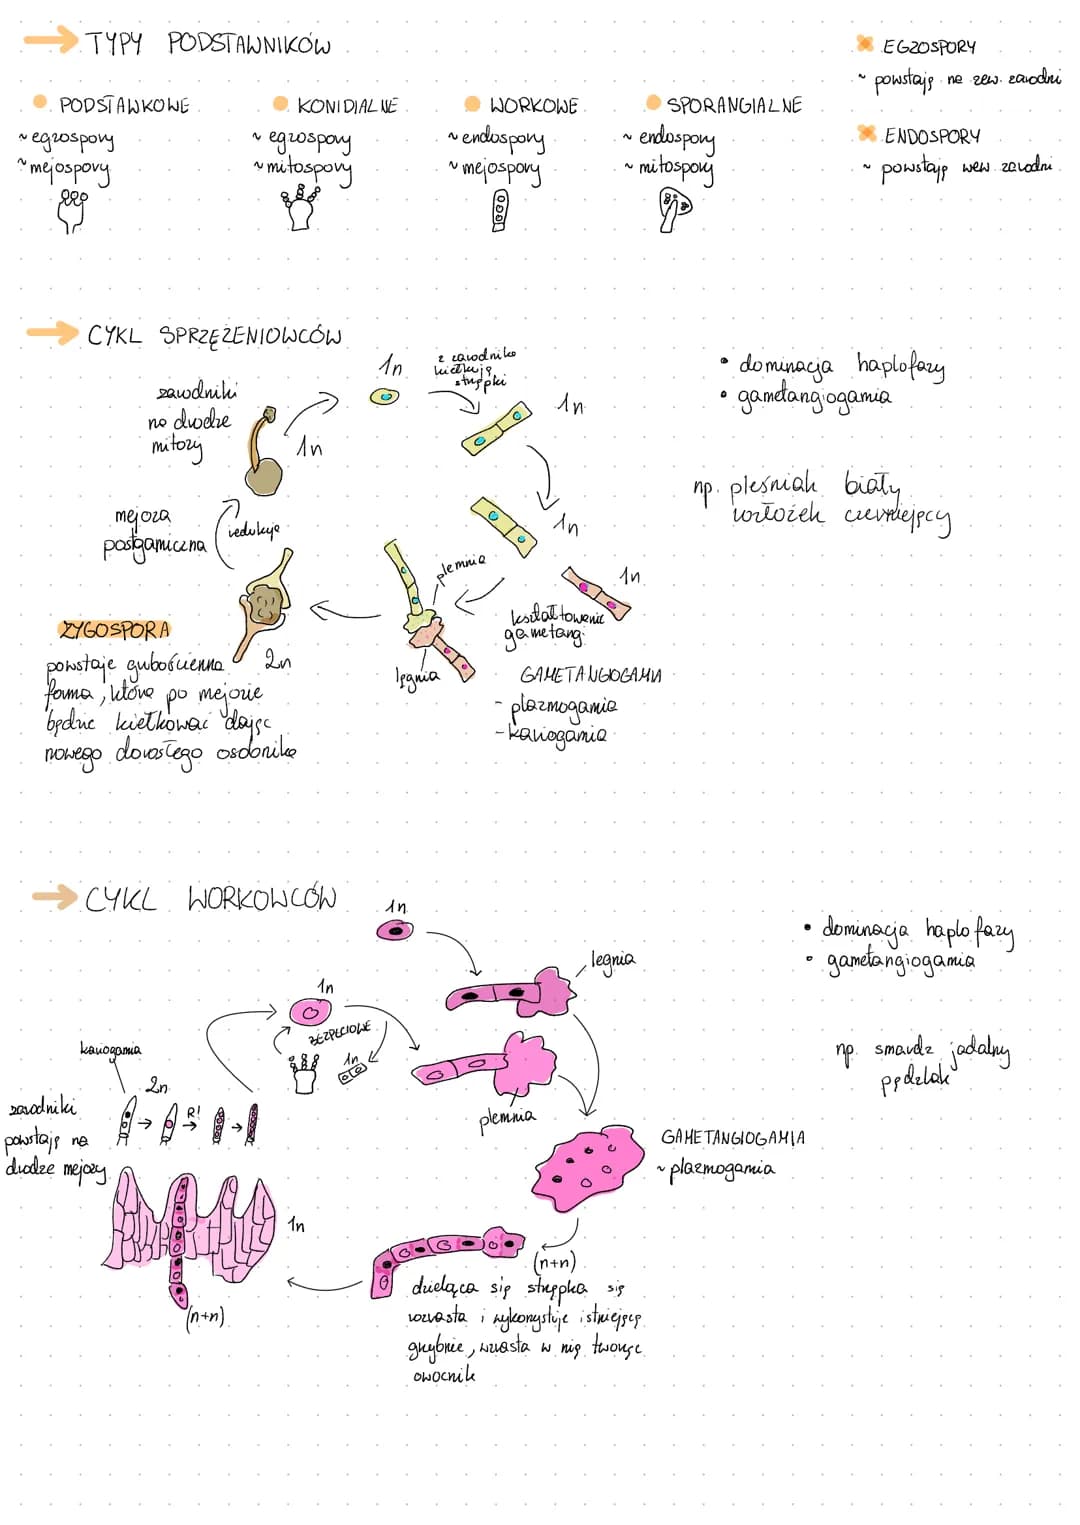 TYPY PODSTAWNIKÓW
PODSTAWKOWE
~ egzospory
~ mejospory
KONIDIALNE
~ egzospory
~ mitospory
WORKOWE
~ endospory
~ mejospory
SPORANGIALNE
~ endospory
~ mitospory
EGZOSPORY
~ powstają na zew. zarodni
ENDOSPORY
~ powstają wew. zarodni
CYKL SPRZĘŻENIOWCÓW
zarodniki
na drodze
mitozy
1n
1n
z zarodnika
kiełkują
strzępki
1n
1n
1n
kształtowanie
gametangi
GAMETANGIOGAMIA
- plazmogamia
- kariogamia
plemnia
lęgnia
2n
mejoza
postgamiczna
redukuje
ZYGOSPORA
powstaje grubościenna
forma, która po mejozie
będzie kiełkować dając
nowego dorosłego osobnika
• dominacja haplofazy
• gametangiogamia
np. pleśniak biały
rozłożek czerniejący
CYKL WORKOWCÓW
1n
legnia
plemnia
1n
BEZPŁCIOWE
1n
kariogamia
2n
R!
zarodniki
powstają na
drodze mejozy
1n
(n+n)
GAMETANGIOGAMIA
~ plazmogamia
(n+n)
dzieląca się strzępka się
rozrasta i wykorzystuje istniejącą
grzybnie, wrasta w nią tworząc
owocnik
• dominacja haplofazy
• gametangiogamia
np. smardz jadalny
pędzlak